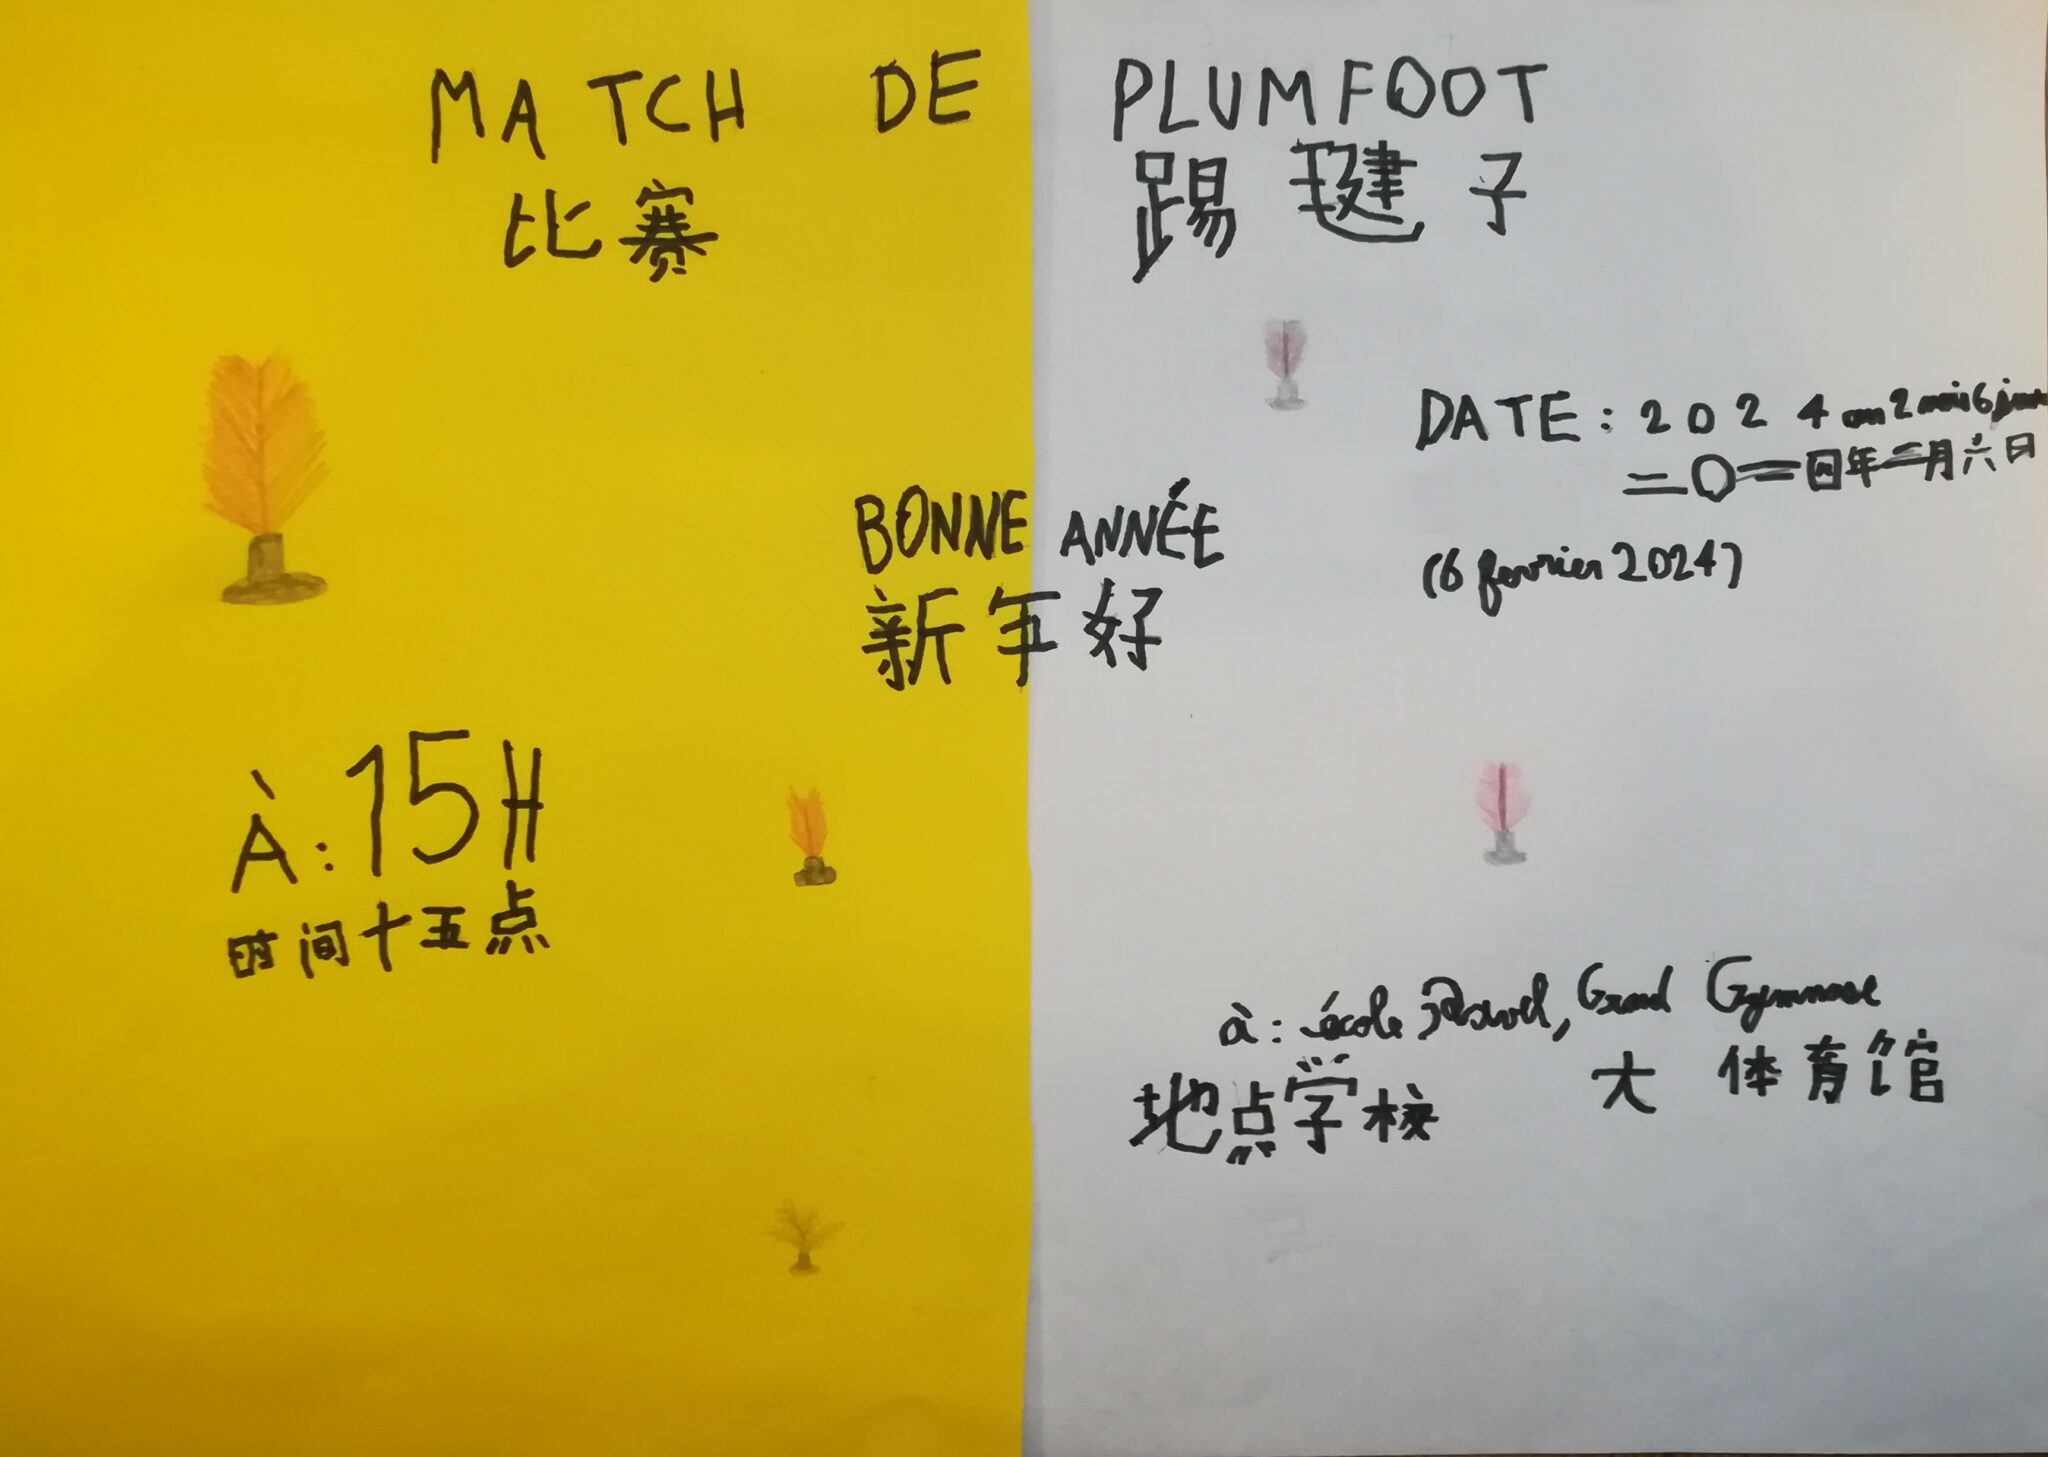 MATCH DE PLUMFOOT
比赛 踢毽子
DATE : 2024 an 2 mois 6 jours
二〇二四年二月六日
(6 fevrier 2024)
BONNE ANNÉE
新年好
À : 15H
时间十五点
à : école, Grand Gymnase
地点学校 大 体育馆